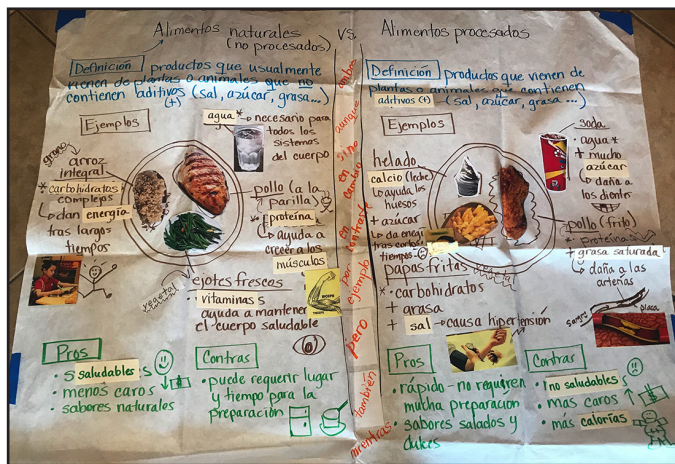 Alimentos naturales
(no procesados)
Definición productos que usualmente
vienen de plantas o animales que no
contienen aditivos (sal, azúcar, grasa...)
(+)
Ejemplos
agua * → necesario para
todos los
sistemas
del cuerpo
grano
arroz
integral
* carbohidratas
complejas
↳ dan energía
tras largos
tiempos
pollo (a la
parilla)
* proteína
↳ ayuda a
creer a los
músculos
vegetal
ejotes frescos
· vitaminas s
ayuda a mantener
el cuerpo saludable
Pros
· s saludables s
· menos caros ↓
· sabores naturales
Contras
· puede requerir lugar
y tiempo para la
preparación
VS.
ambos
aunque
sino
en cambio
en contraste
por ejemplo
pero
también
mientras
Alimentos procesados
Definición productos que vienen de
plantas o animales que contienen
aditivos (+) (sal, azúcar, grasa...)
Ejemplos
helado
calcio (leche)
↳ ayuda los
huesos
+ azúcar
↳ da energ
tras cortos
tiempos
soda
· agua *
+ mucho
azúcar
↳ daña a
los dientes
pollo (frito)
* proteína
+ grasa saturada
↳ daña a las
arterias
sangre
placa
papas fritas
vegetal
* · carbohidratos
+ grasa
+ sal → causa hipertensión
Pros
· rápido - no requiren
mucha preparación
· sabores salados y
dulces
Contras
· no saludables
· mas caros ↑ $
· más calorías